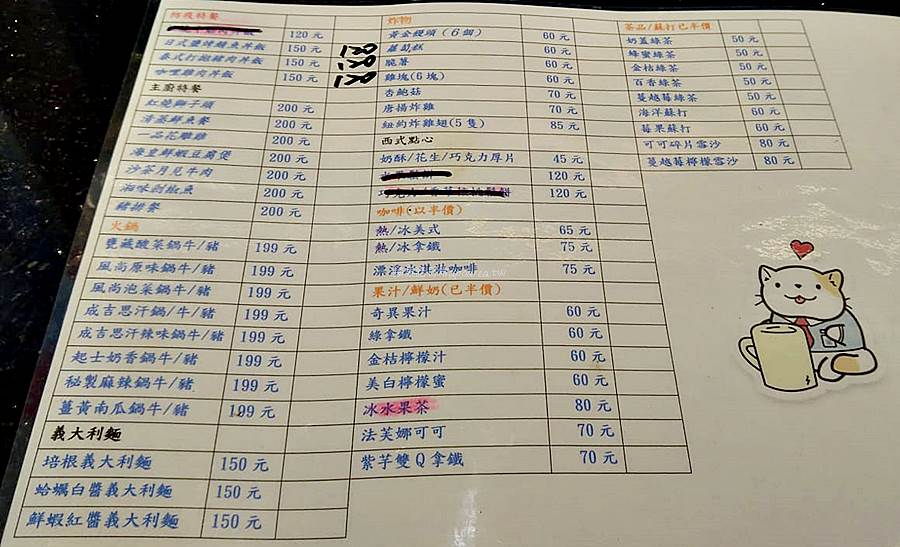 防疫特餐
120 元
日式鹽烤鯖魚丼飯 150 元
泰式打拋豬肉丼飯 150 元
咖哩雞肉丼飯 150 元
主廚特餐
紅燒獅子頭 200 元
清蒸鮮魚餐 200 元
一品花雕雞 200 元
海皇鮮蝦豆腐煲 200 元
沙茶月見牛肉 200 元
湘味剁椒魚 200 元
豬排餐 200 元
火鍋
甕藏酸菜鍋牛/豬 199 元
風尚原味鍋牛/豬 199 元
風尚泡菜鍋牛/豬 199 元
成吉思汗鍋/牛/豬 199 元
成吉思汗辣味鍋牛/豬 199 元
起士奶香鍋牛/豬 199 元
秘製麻辣鍋牛/豬 199 元
薑黃南瓜鍋牛/豬 199 元
義大利麵
培根義大利麵 150 元
蛤蠣白醬義大利麵 150 元
鮮蝦紅醬義大利麵 150 元
炸物
黃金饅頭（6個） 60 元
蘿蔔糕 60 元
脆薯 60 元
雞塊(6塊) 60 元
杏鮑菇 70 元
唐揚炸雞 70 元
紐約炸雞翅(5隻) 85 元
西式點心
奶酥/花生/巧克力厚片 45 元
120 元
120 元
咖啡(以半價)
熱/冰美式 65 元
熱/冰拿鐵 75 元
漂浮冰淇淋咖啡 75 元
果汁/鮮奶(已半價)
奇異果汁 60 元
綠拿鐵 60 元
金桔檸檬汁 60 元
美白檸檬蜜 60 元
冰水果茶 80 元
法芙娜可可 70 元
紫芋雙Q拿鐵 70 元
茶品/蘇打已半價
奶蓋綠茶 50 元
蜂蜜綠茶 50 元
金桔綠茶 50 元
百香綠茶 50 元
蔓越莓綠茶 50 元
海洋蘇打 60 元
莓果蘇打 60 元
可可碎片雪沙 80 元
蔓越莓檸檬雪沙 80 元